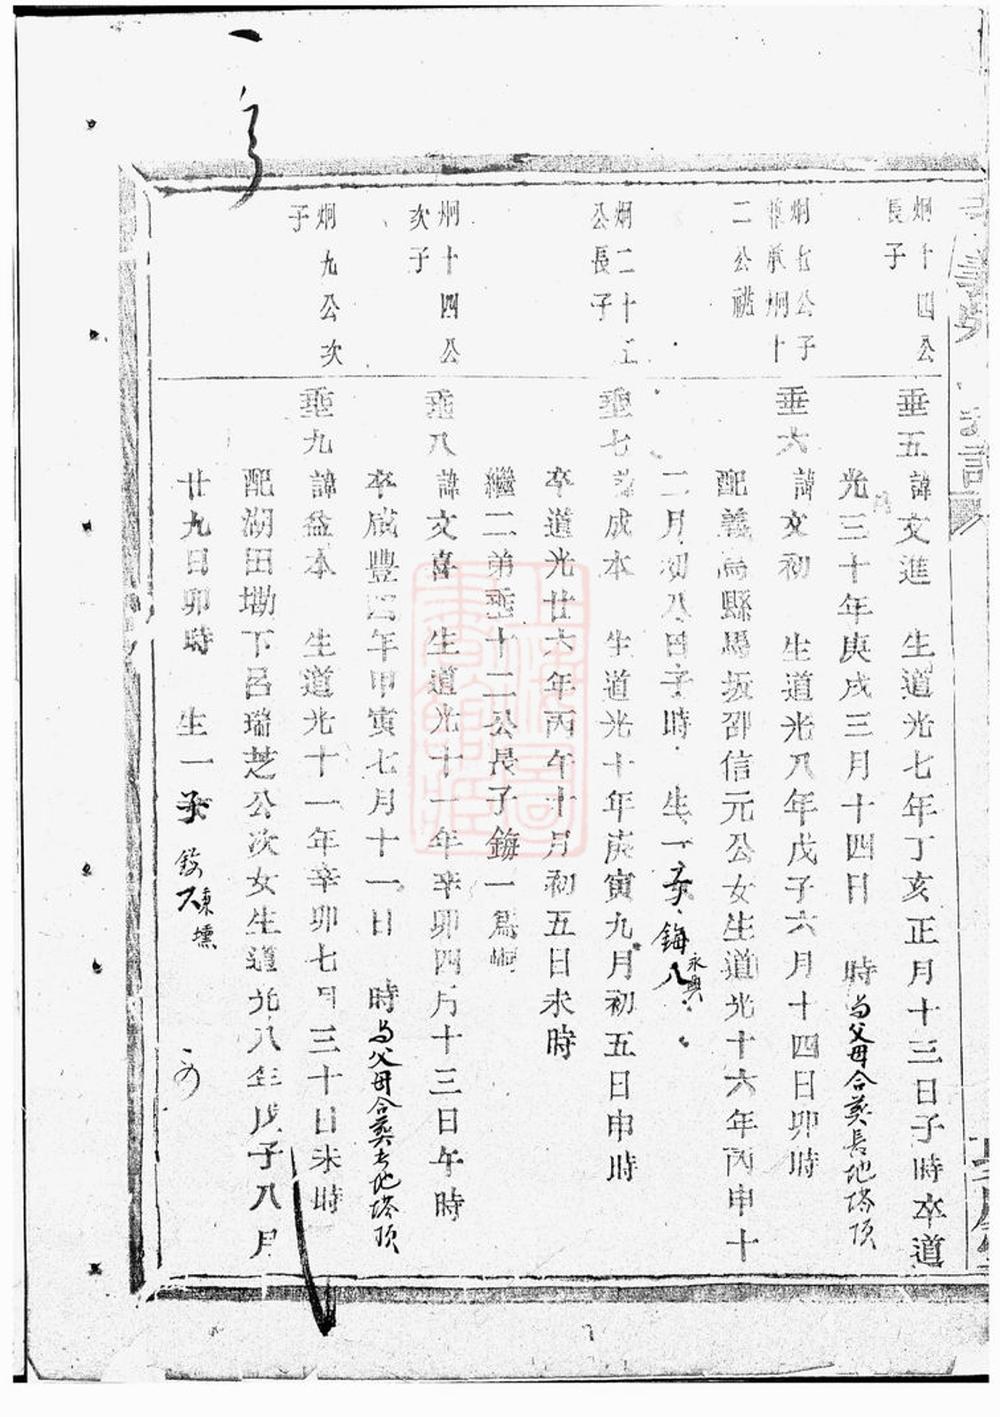 烱十四公
長子
垂五諱文進 生道光七年丁亥正月十三日子時卒道
光三十年庚戌三月十四日 時 父母合葬長地塔頂
烱七公子
兼承烱十
二公祧
垂六諱文初 生道光八年戊子六月十四日卯時
配義烏縣馬坂邵信元公女生道光十六年丙申十
二月初八日子時 生一子 鋂八 永興
烱二十五
公長子
垂七諱成本 生道光十年庚寅九月初五日申時
卒道光廿六年丙午十月初五日未時
繼二弟垂十二公長子鋂一爲嗣
烱十四公
次子
垂八諱文喜 生道光十一年辛卯四月十三日午時
卒咸豐四年甲寅七月十一日 時 父母合葬長地塔頂
烱九公次
子
垂九諱益本 生道光十一年辛卯七月三十日未時
配湖田墈下呂瑞芝公次女生道光八年戊子八月
廿九日卯時 生一子